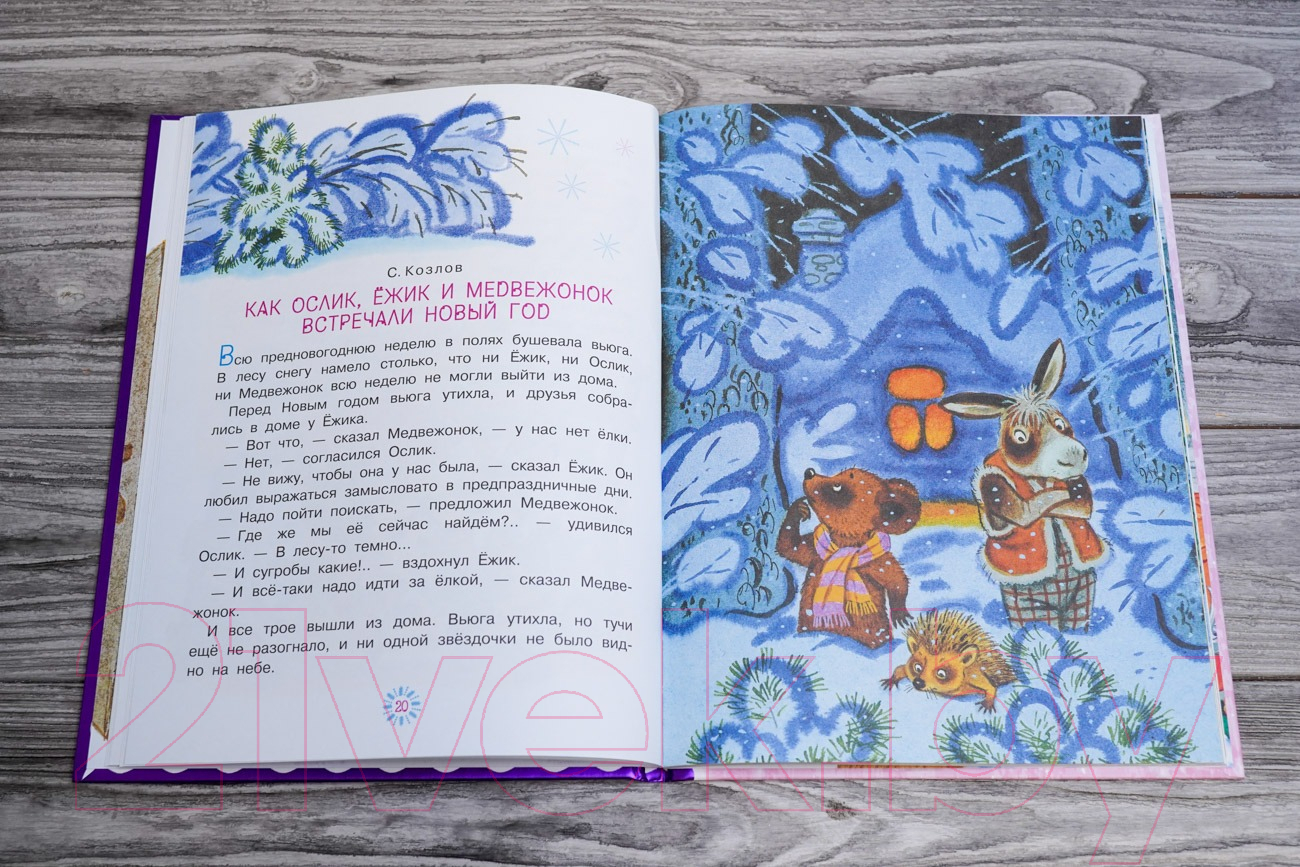 С. Козлов
КАК ОСЛИК, ЁЖИК И МЕДВЕЖОНОК
ВСТРЕЧАЛИ НОВЫЙ ГОД
Всю предновогоднюю неделю в полях бушевала вьюга.
В лесу снегу намело столько, что ни Ёжик, ни Ослик,
ни Медвежонок всю неделю не могли выйти из дома.
Перед Новым годом вьюга утихла, и друзья собра-
лись в доме у Ёжика.
— Вот что, — сказал Медвежонок, — у нас нет ёлки.
— Нет, — согласился Ослик.
— Не вижу, чтобы она у нас была, — сказал Ёжик. Он
любил выражаться замысловато в предпраздничные дни.
— Надо пойти поискать, — предложил Медвежонок.
— Где же мы её сейчас найдём?.. — удивился
Ослик. — В лесу-то темно...
— И сугробы какие!.. — вздохнул Ёжик.
— И всё-таки надо идти за ёлкой, — сказал Медве-
жонок.
И все трое вышли из дома. Вьюга утихла, но тучи
ещё не разогнало, и ни одной звёздочки не было вид-
но на небе.
20
21vek.by